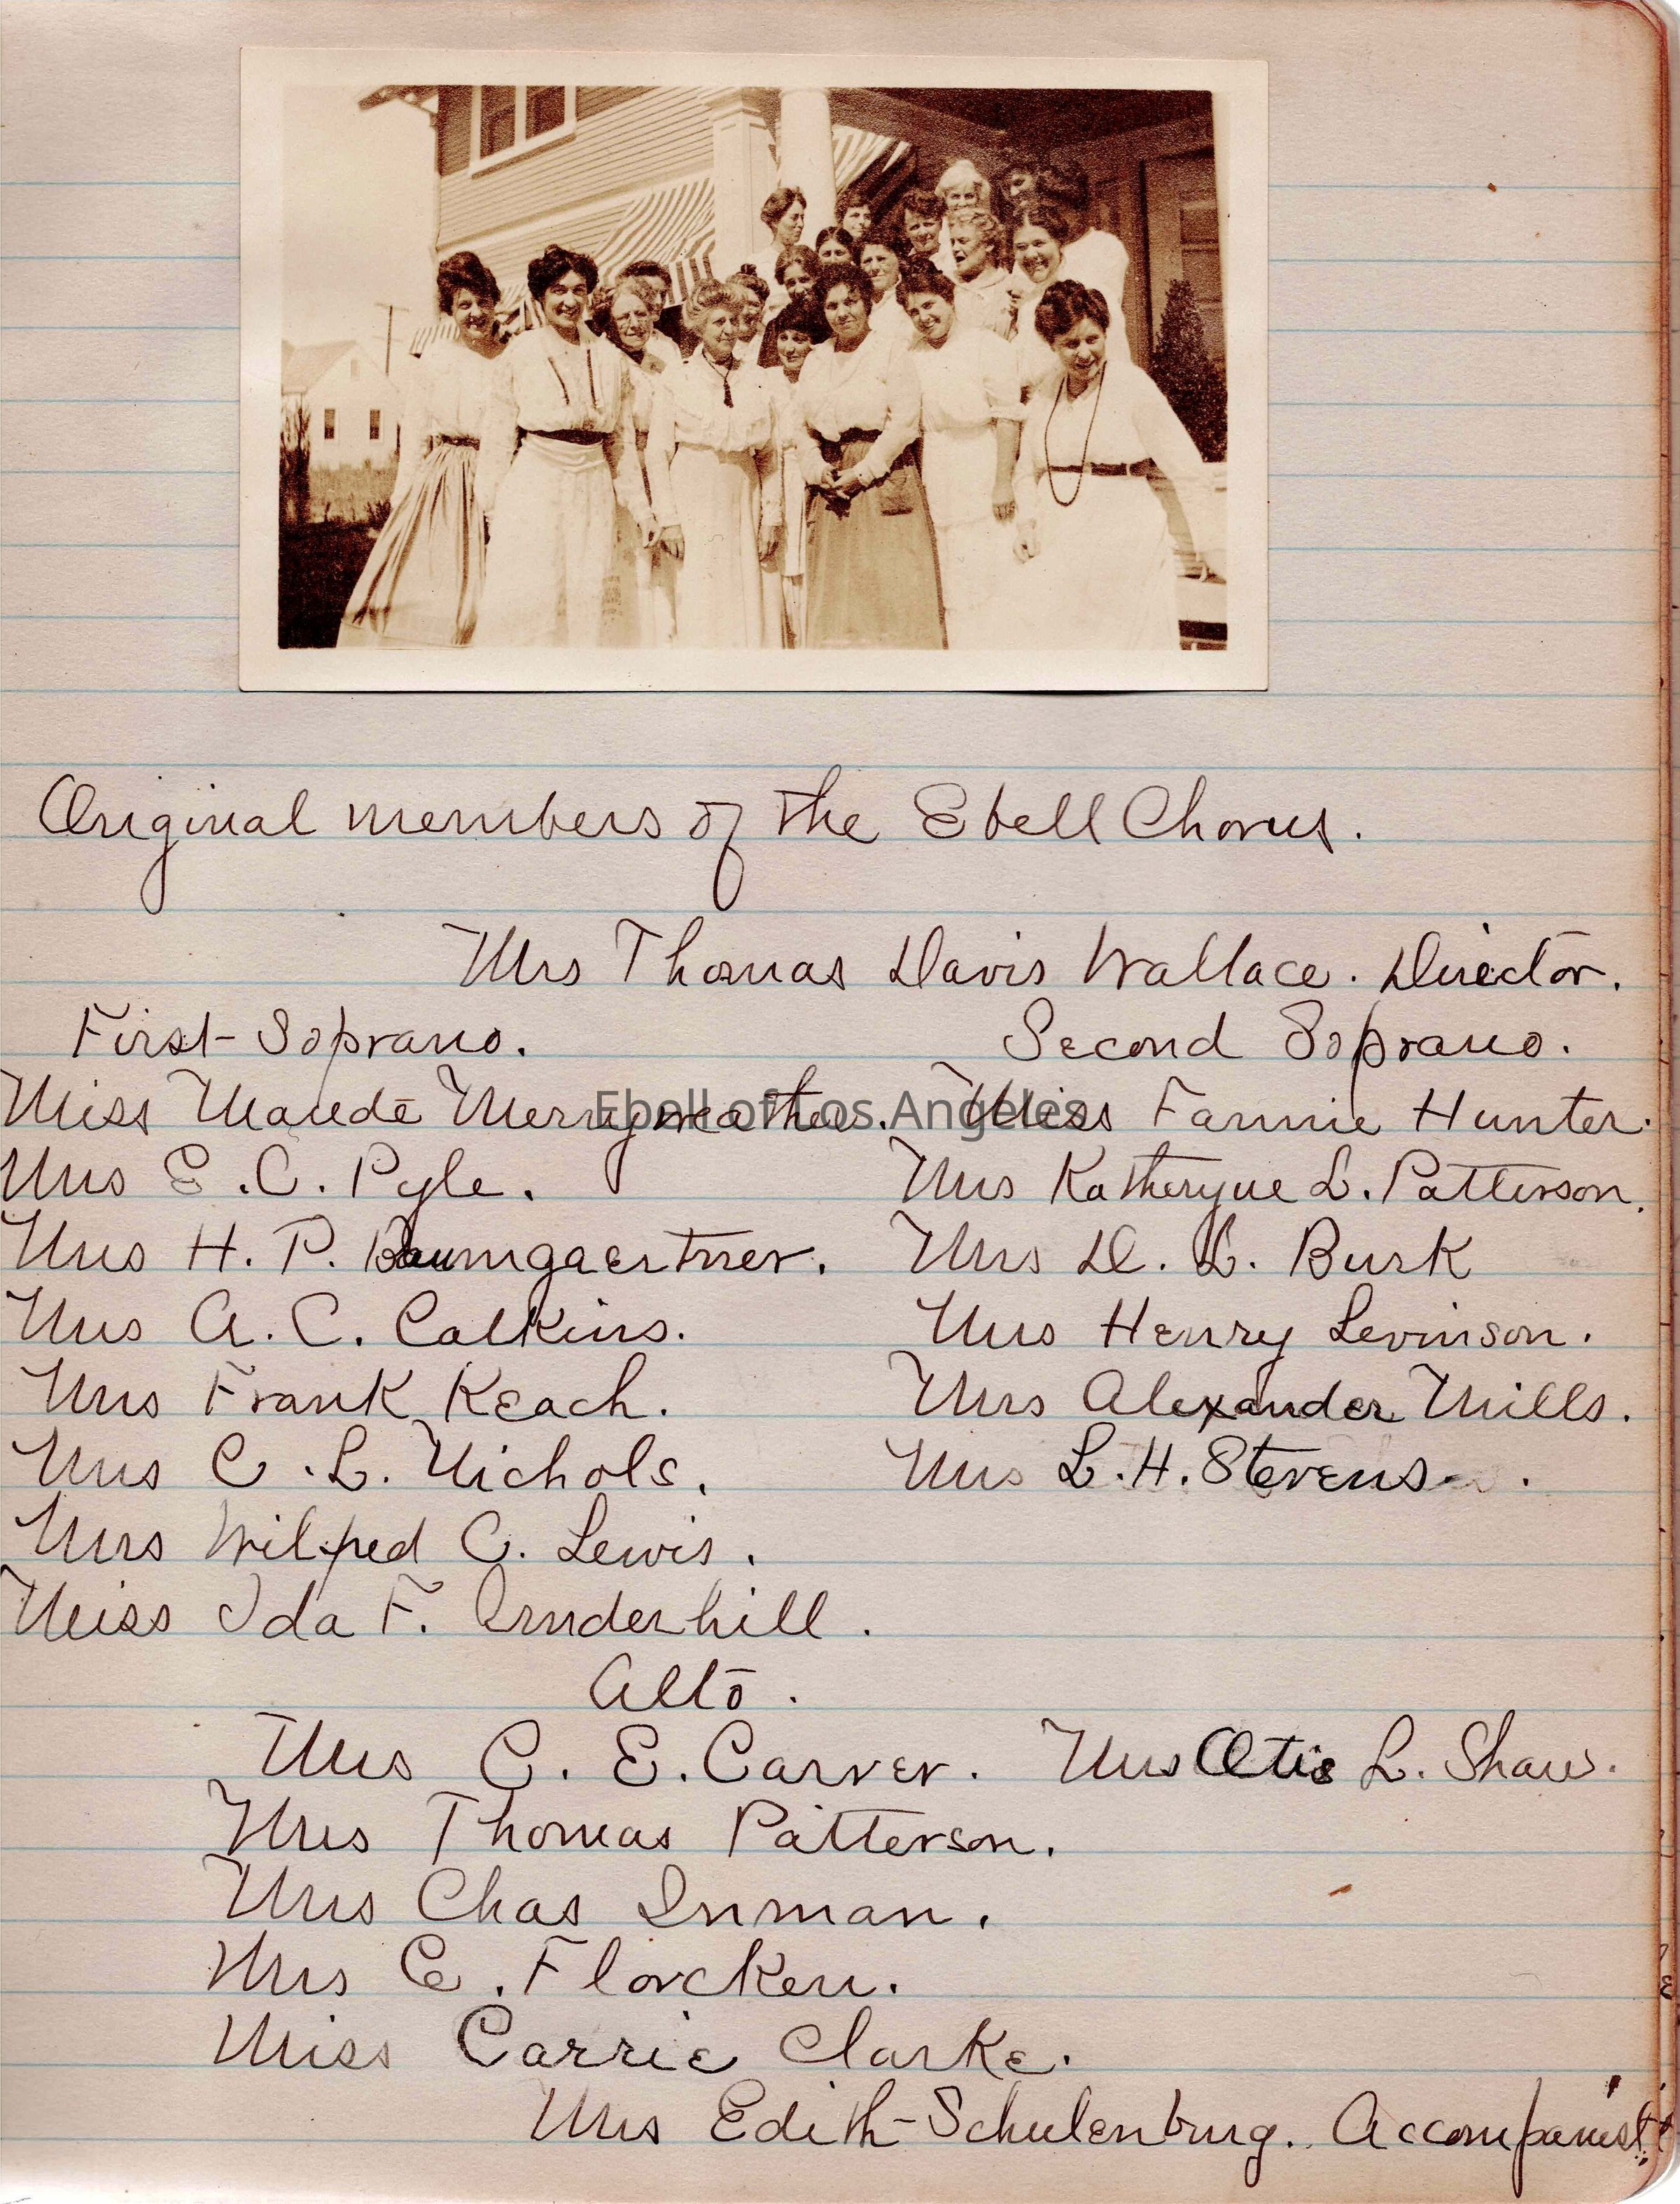 Original members of the Ebell Chorus.
Mrs Thomas Davis Wallace. Director.
First Soprano.
Second Soprano.
Miss Maude Merryweather.
Mrs E.C. Pyle.
Mrs H. P. Baumgaertner.
Mrs A. C. Calkins.
Mrs Frank Keach.
Mrs C.L. Nichols.
Mrs Wilfred C. Lewis.
Miss Ida F. Underhill.
Miss Fannie Hunter.
Mrs Katheryne L. Patterson.
Mrs D. L. Burk
Mrs Henry Levinson.
Mrs Alexander Mills.
Mrs L.H. Stevens.
Ebell of Los Angeles
Alto.
Mrs C. E. Carver. Mrs Otis L. Shaw.
Mrs Thomas Patterson.
Mrs Chas Inman.
Mrs C. Florcken.
Miss Carrie Clarke.
Mrs Edith Schulenburg. Accompanist